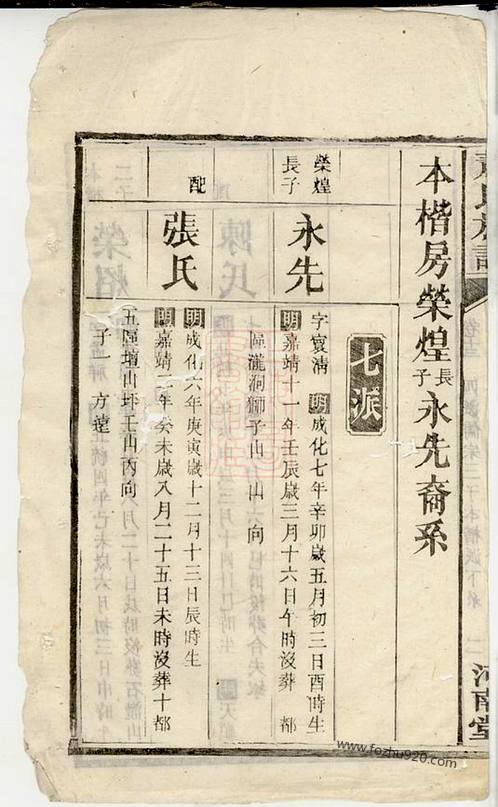 本楷房榮煌長子永先裔系
七派
榮煌長子
永先
字寔清 明成化七年辛卯歲五月初三日酉時生
明嘉靖十一年壬辰歲三月十六日午時沒葬 都
區瀧洞獅子山 山 向
配
張氏
明成化六年庚寅歲十二月十三日辰時生
明嘉靖 年癸未歲八月二十五日未時沒葬十都
五區壇山坪壬山丙向
子一 方達
河南堂
www.fozhu920.com